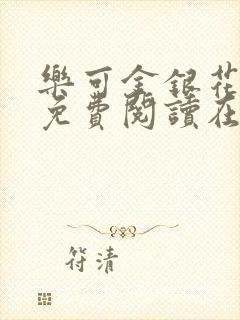 樂可金銀花
免費閱讀在
符清